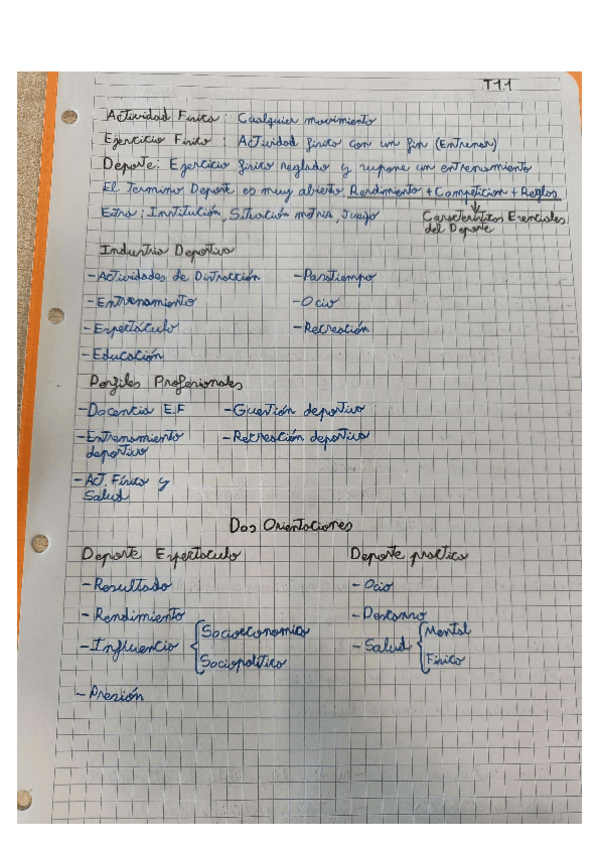 T1.1
Actividad Física: Cualquier movimiento
Ejercicio Físico: Actividad física con un fin (Entrenar)
Deporte: Ejercicio físico reglado y supone un entrenamiento
El Termino Deporte es muy abierto Rendimiento + Competicion + Reglas
Extra: Institución, Situación motriz, Juego
Características Esenciales
del Deporte
Industria Deportiva
-Actividades de Distracción -Pasatiempo
-Entrenamiento -Ocio
-Espectáculo -Recreación
-Educación
Perfiles Profesionales
-Docencia E.F -Guestión deportiva
-Entrenamiento -Recreación deportiva
deportivo
-Act. Física y
Salud
Dos Orientaciones
Deporte Espectaculo Deporte practica
-Resultado -Ocio
-Rendimiento -Descanso
-Influencia { Socioeconomica -Salud { Mental
Sociopolitica Física
-Presión